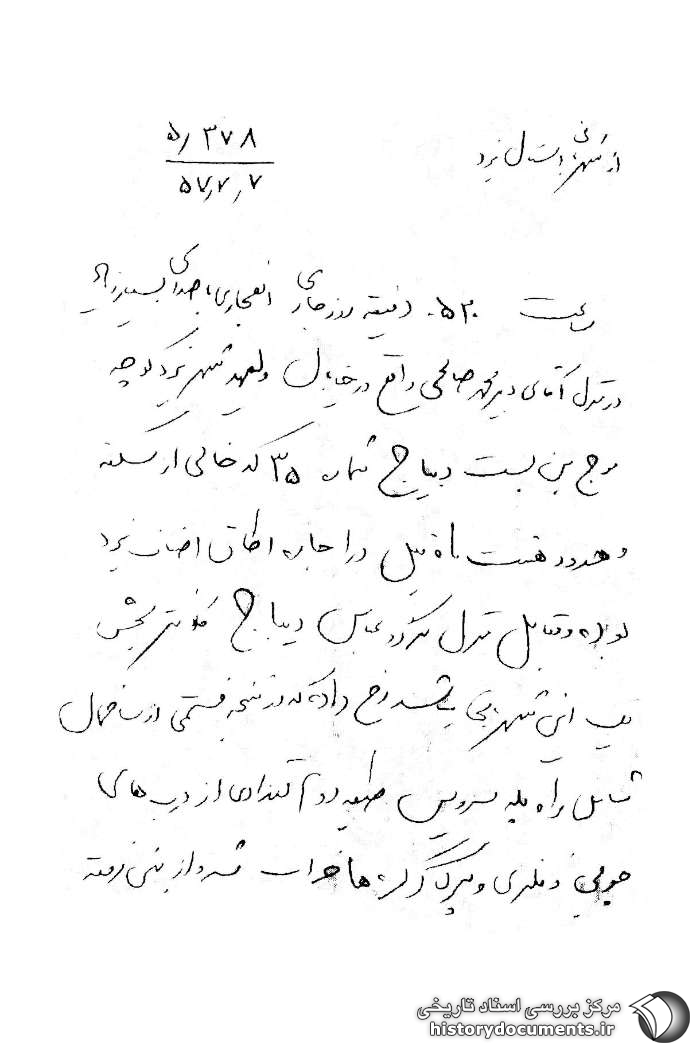 از شهربانی استان یزد
۵/۳۷۸
۵۷/۷/۷
ساعت ۰۵۲۰ دقیقه روز جاری انفجاری با صدای بسیار زیاد
در منزل آقای دبیر محمد صالحی واقع در خیابان ولیعهد شهر یزد کوچه
بن بست دیباج شماره ۳۵ که خالی از سکنه
و حدود هشت ماه قبل در اجاره اطاق اصناف یزد
بوده و مقابل منزل عباس دیباج کلانتر بخش
یک این شهربانی رخ داده که در نتیجه قسمتی از ساختمان
شامل راه پله سرویس طبقه دوم تعدادی از درب های
چوبی و فلزی و ها خراب شده و از بین رفته
مرکز بررسی اسناد تاریخی
historydocuments.ir